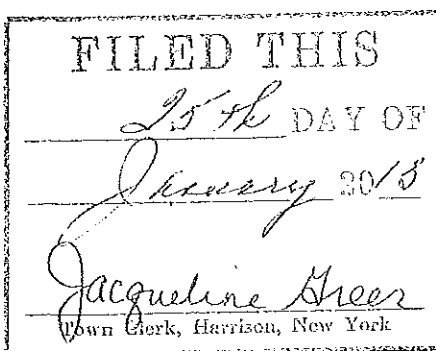 FILED THIS
25th DAY OF
January
Jacqueline Greer
Town Clerk, Harrison, New York